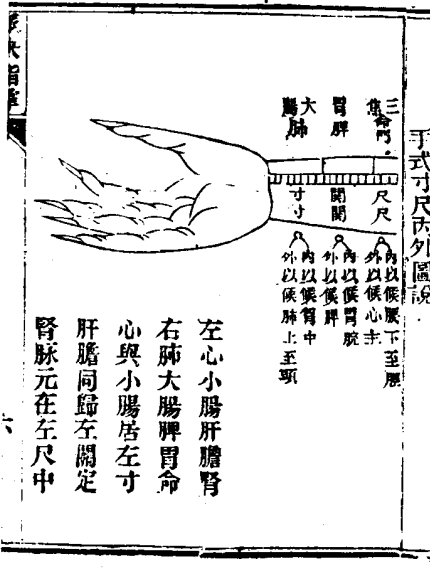 手式寸尺內外圖說
三焦命門
脾
胃
大腸肺
尺尺
關關
寸寸
內以候腹下至腰
外以候心主
內以候胃脘
外以候脾
內以候胷中
外以候肺上至頸
左心小腸肝膽腎
右肺大腸脾胃命
心與小腸居左寸
肝膽同歸左關定
腎脉元在左尺中
訣指掌
六